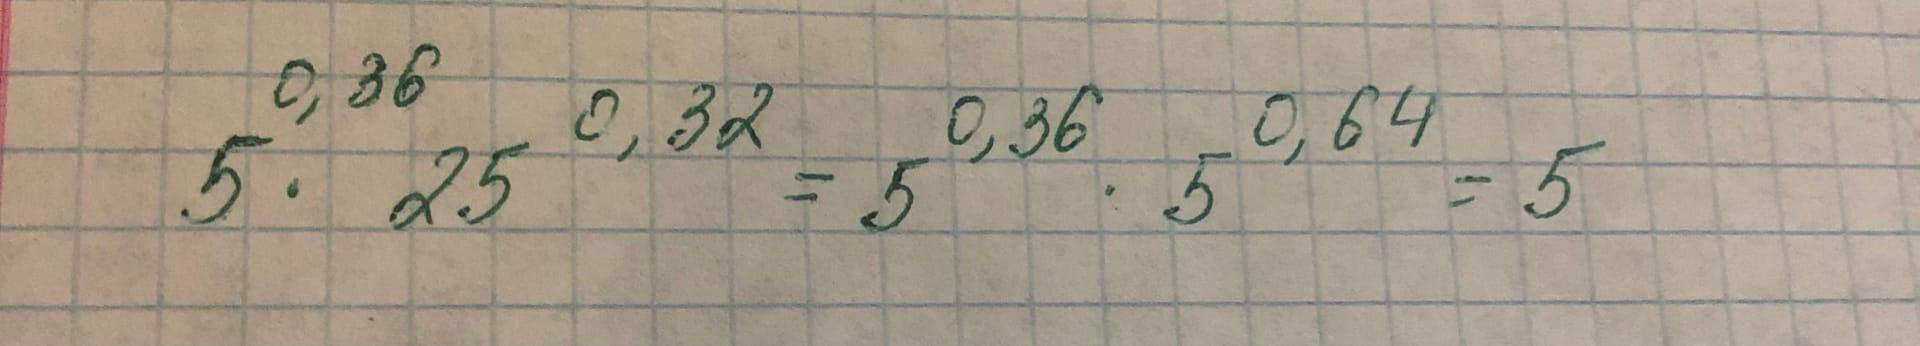 5^{0,36} · 25^{0,32} = 5^{0,36} · 5^{0,64} = 5